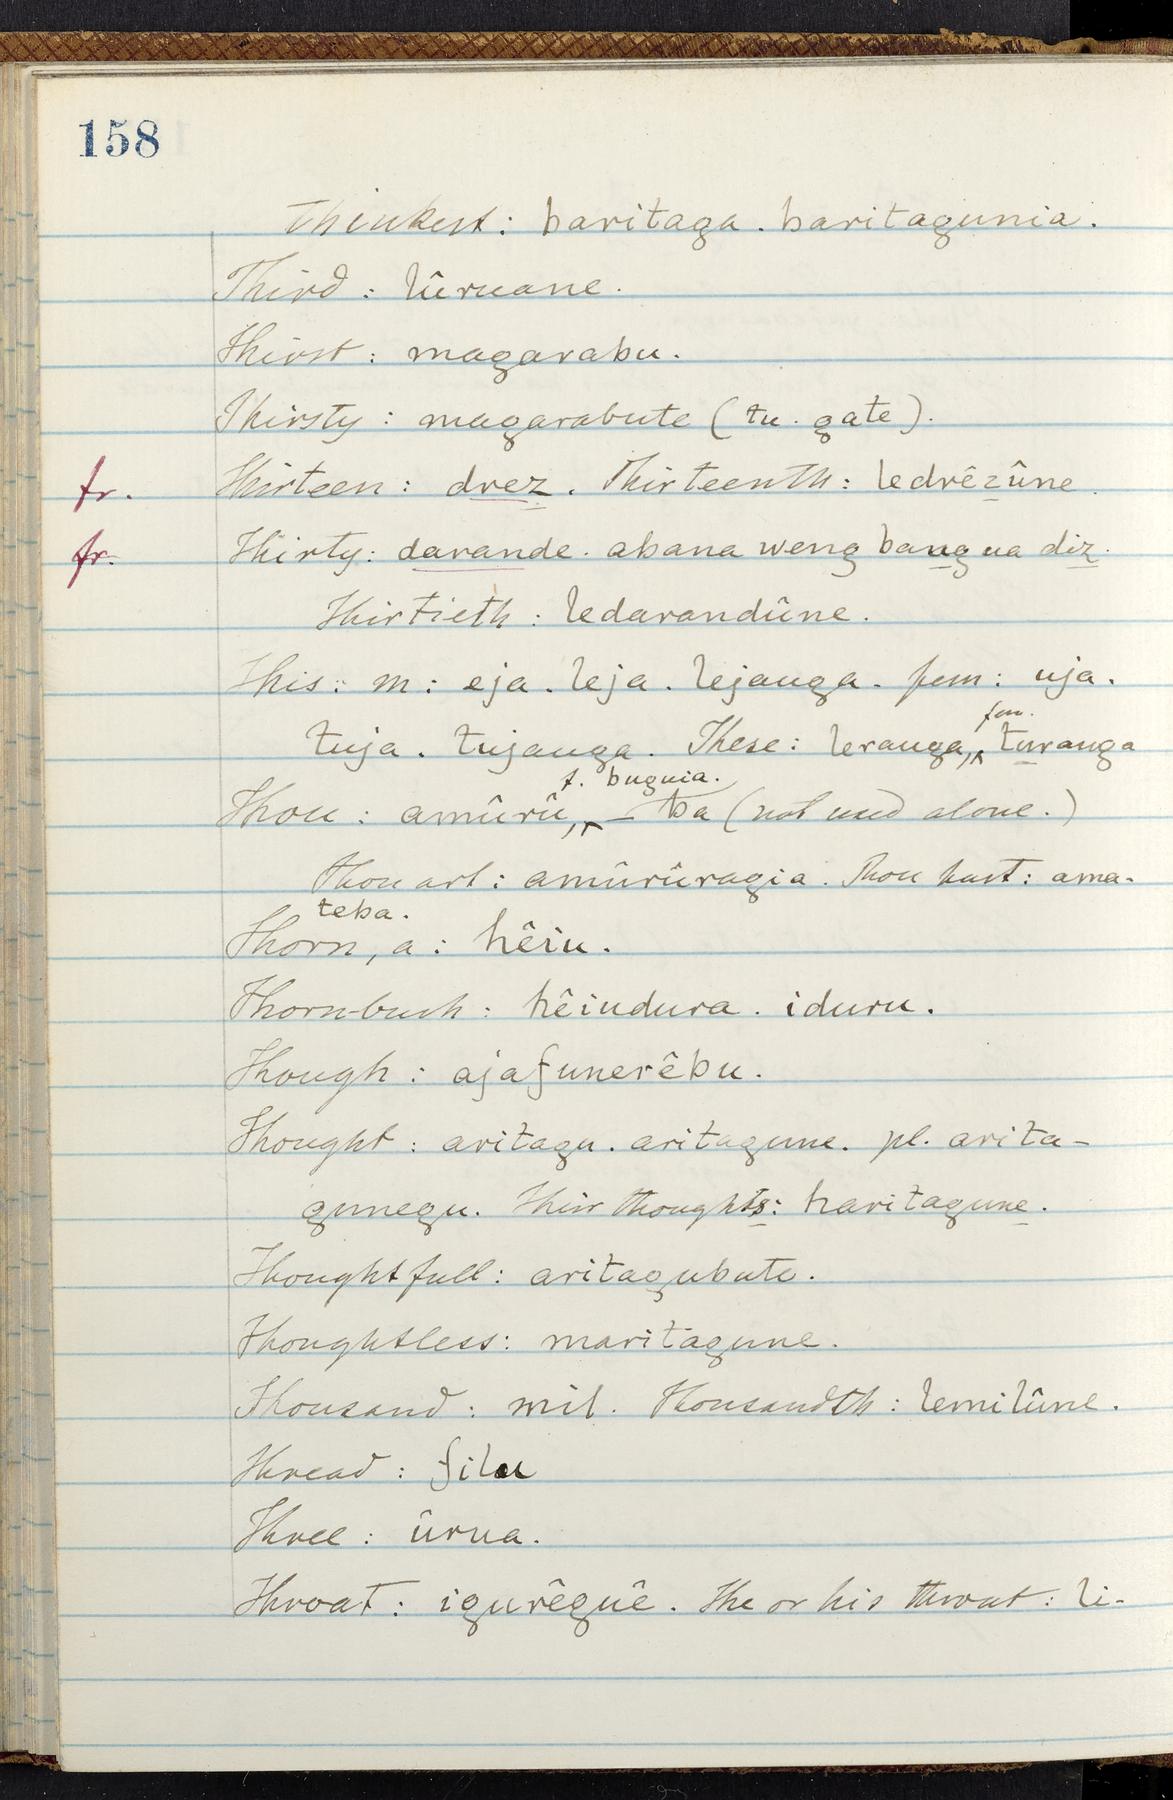 158
Thinkest: baritaga. baritagunia.
Third: lûruane.
Thirst: magarabu.
Thirsty: magarabute (tu. gate).
fr. Thirteen: drez. Thirteenth: ledrêzûne.
fr. Thirty: darande. abana weng bangua diz.
Thirtieth: ledarandûne.
This: m: eja. leja. lejauga. fem: uja.
fem.
tuja. tujauga. These: lerauga, turanga
f. buguia.
Thou: amûrû, – ba (not used alone.)
Thou art: amûrûragia. Thou hast: ama-
teba.
Thorn, a: hêiu.
Thorn-bush: hêiudura. iduru.
Though: ajafunerêbu.
Thought: aritagu. aritagune. pl. arita-
gunegu. Their thoughts: haritagune.
Thoughtfull: aritagubute.
Thoughtless: maritagune.
Thousand: mil. Thousandth: lemilûne.
Thread: filu
Three: ûrua.
Throat: igurêguê. The or his throat: li-